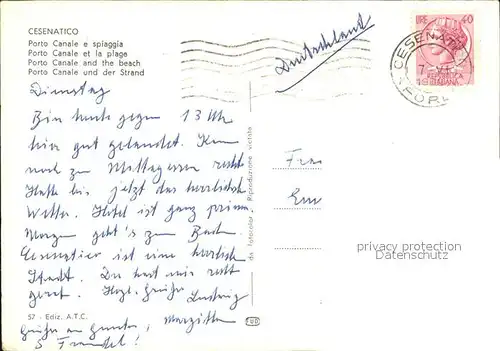 CESENATICO
Porto Canale e spiaggia
Porto Canale et la plage
Porto Canale and the beach
Porto Canale und der Strand
Deutschland
LIRE 40
CESENATICO
Dienstag
Bin heute gegen 13 Uhr
hier gut gelandet. Kam
noch zu Mittagessen recht.
Hatte bis jetzt das herrlichste
Wetter. Hotel ist ganz prima.
Morgen geht's zum Baden.
Cesenatico ist eine herrliche
Stadt. Du hast mir recht
geraten. Herzl. Grüße Ludwig
57 - Ediz. A.T.C.
Grüße an Gunter, Margitta
Frau
Em
da fotocolor. Riproduzione vietata
privacy protection
Datenschutz